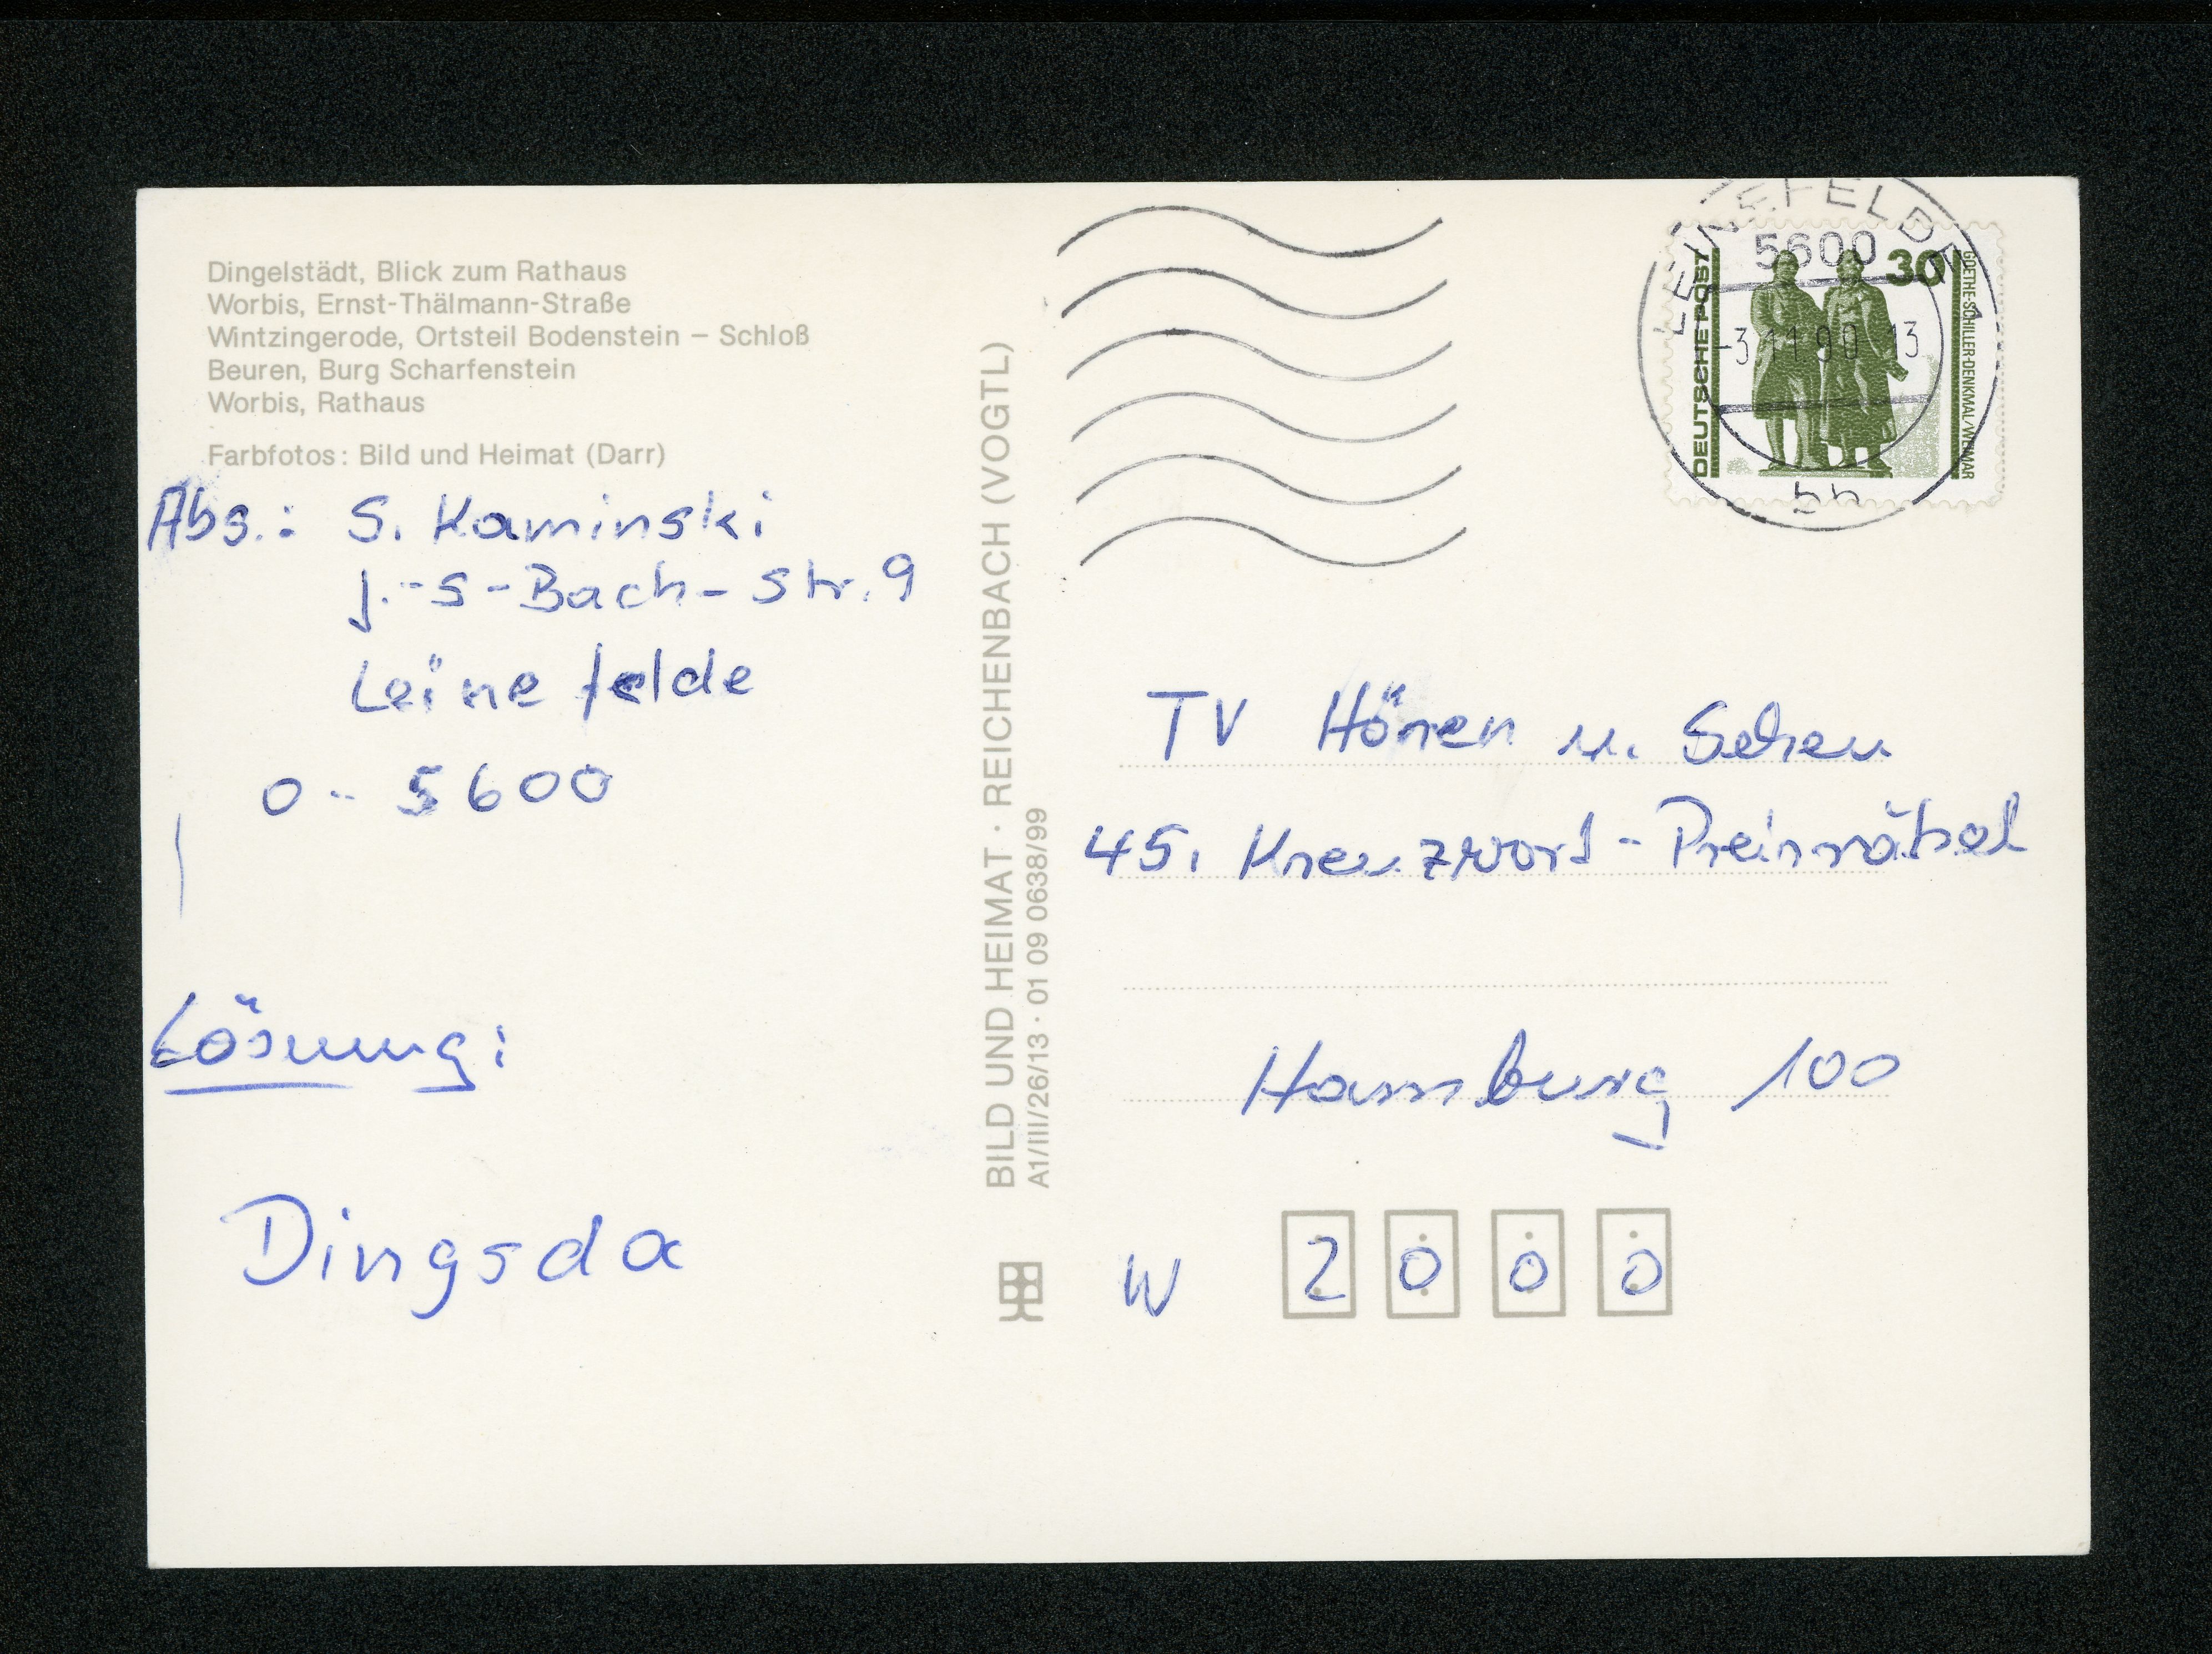 Dingelstädt, Blick zum Rathaus
Worbis, Ernst-Thälmann-Straße
Wintzingerode, Ortsteil Bodenstein – Schloß
Beuren, Burg Scharfenstein
Worbis, Rathaus
Farbfotos: Bild und Heimat (Darr)
Abs.: S. Kaminski
J.-S-Bach-Str. 9
Leinefelde
O-5600
Lösung:
Dingsda
BILD UND HEIMAT · REICHENBACH (VOGTL)
A1/III/26/13 · 01 09 0638/99
LEINEFELDE 1
5600
-3.11.90 13
bb
DEUTSCHE POST
30
GOETHE-SCHILLER-DENKMAL/WEIMAR
TV Hören u. Sehen
45. Kreuzwort-Preisrätsel
Hamburg 100
W 2000